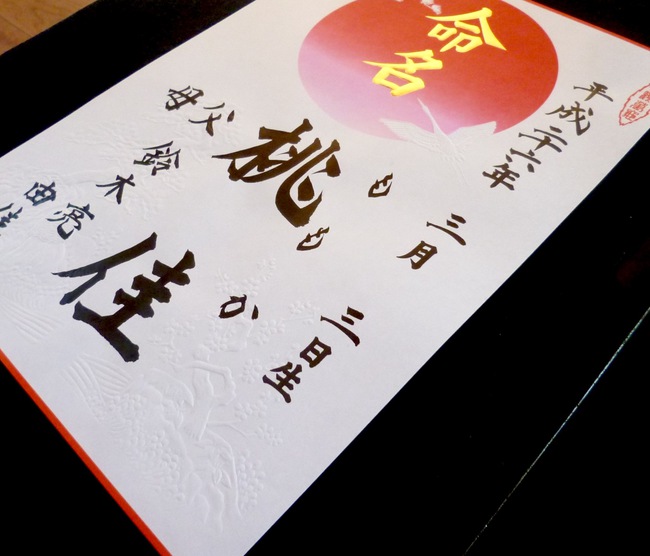 命名
平成二十六年
三月
三日生
桃佳
ももか
父
鈴木
亮
母
由佳